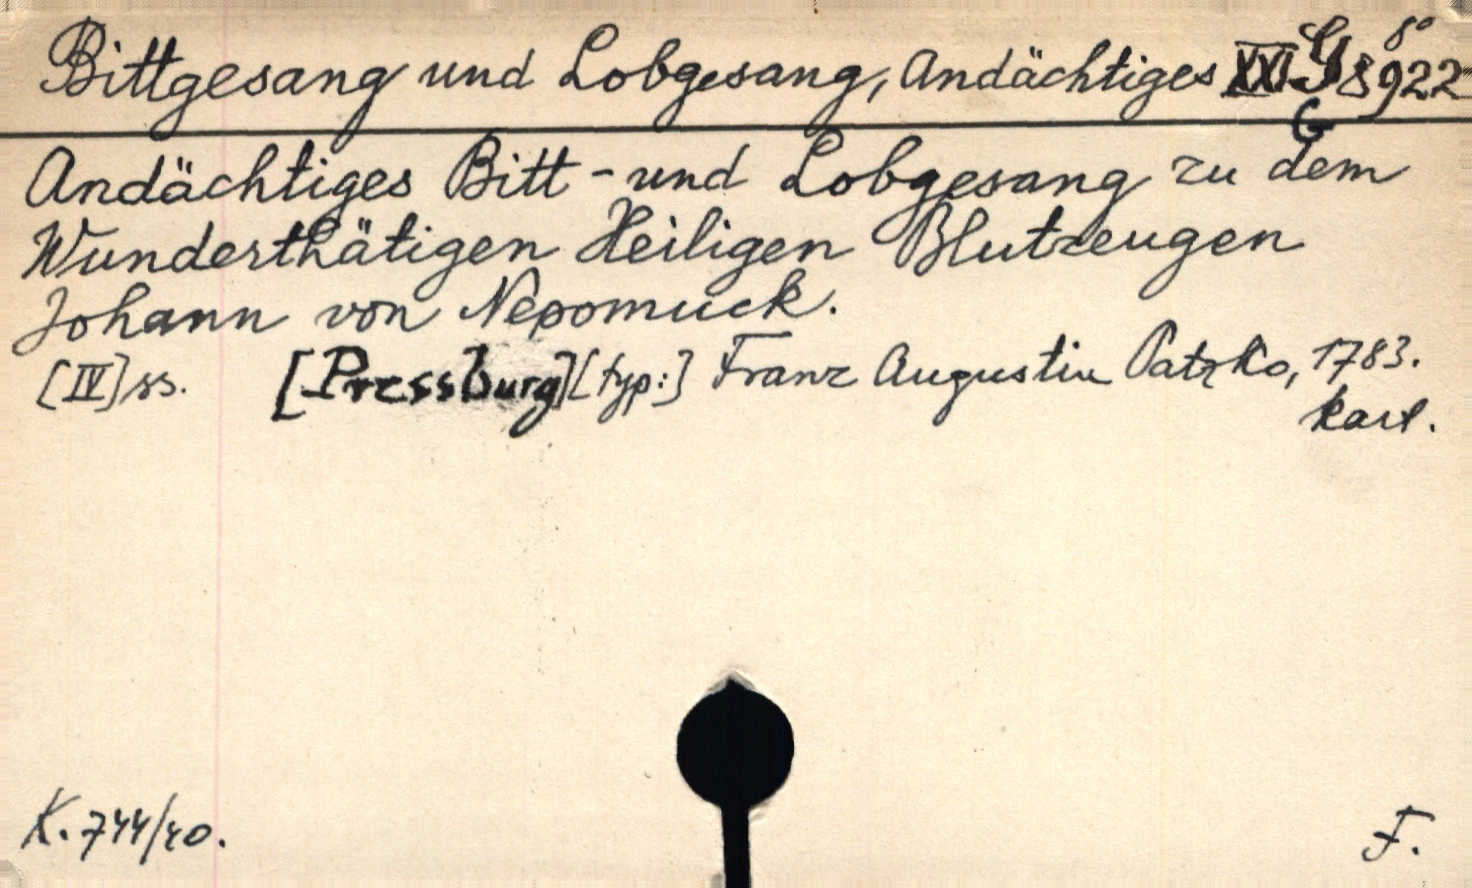 Bittgesang und Lobgesang, Andächtiges XXI. G 8° 8922
G
Andächtiges Bitt - und Lobgesang zu dem
Wunderthätigen Heiligen Blutzeugen
Johann von Nepomuck.
[IV] ss. [Pressburg] [typ:] Franz Augustin Patzko, 1783.
kart.
K. 744/40. F.